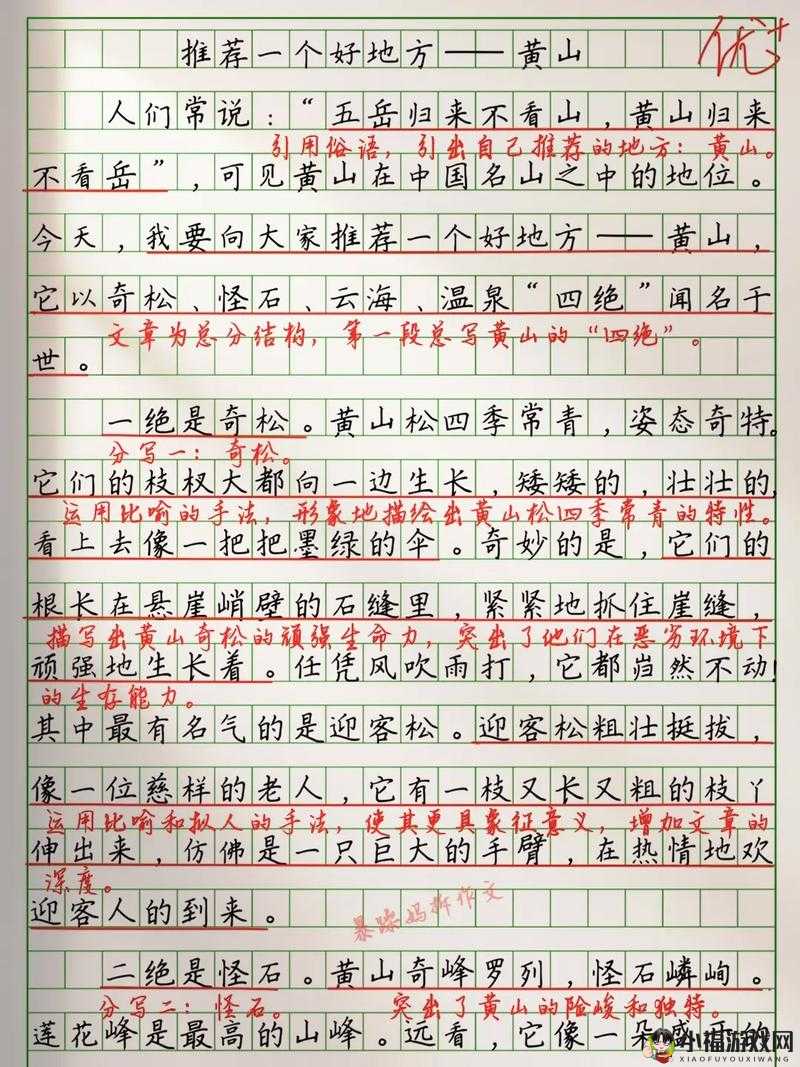 推荐一个好地方——黄山
优+
人们常说：“五岳归来不看山，黄山归来
引用俗语，引出自己推荐的地方：黄山。
不看岳”，可见黄山在中国名山之中的地位。
今天，我要向大家推荐一个好地方——黄山，
它以奇松、怪石、云海、温泉“四绝”闻名于
文章为总分结构，第一段总写黄山的“四绝”。
世。
一绝是奇松。黄山松四季常青，姿态奇特。
分写一：奇松。
它们的枝杈大都向一边生长，矮矮的，壮壮的，
运用比喻的手法，形象地描绘出黄山松四季常青的特性。
看上去像一把把墨绿的伞。奇妙的是，它们的
根长在悬崖峭壁的石缝里，紧紧地抓住崖缝，
描写出黄山奇松的顽强生命力，突出了他们在恶劣环境下
顽强地生长着。任凭风吹雨打，它都岿然不动！
的生存能力。
其中最有名气的是迎客松。迎客松粗壮挺拔，
像一位慈样的老人，它有一枝又长又粗的枝丫
运用比喻和拟人的手法，使其更具象征意义，增加文章的
伸出来，仿佛是一只巨大的手臂，在热情地欢
深度。
迎客人的到来。
暴躁妈拆作文
二绝是怪石。黄山奇峰罗列，怪石嶙峋。
分写二：怪石。 突出了黄山的险峻和独特。
莲花峰是最高的山峰。远看，它像一朵盛开的
小福游戏网
XIAOFUYOUXIWANG